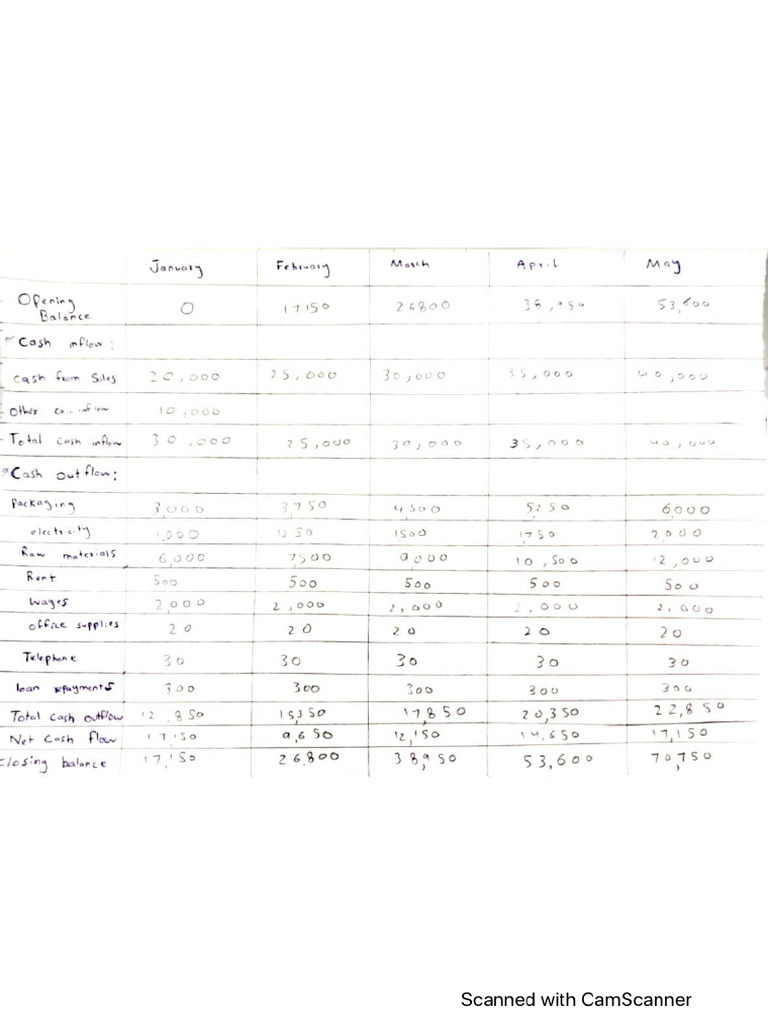 January February March April May
Opening Balance 0 17150 26800 38,950 53,600
Cash inflow:
cash from Sales 20,000 25,000 30,000 35,000 40,000
Other 10,000
Total cash inflow 30,000 25,000 30,000 35,000 40,000
Cash outflow:
Packaging 3,000 3,750 4,500 5,250 6000
electricity 1,000 1250 1500 1750 2,000
Raw materials 6,000 7500 9000 10,500 12,000
Rent 500 500 500 500 500
Wages 2,000 2,000 2,000 2,000 2,000
office supplies 20 20 20 20 20
Telephone 30 30 30 30 30
loan repayments 300 300 300 300 300
Total cash outflow 12,850 15350 17,850 20,350 22,850
Net cash flow 17150 9,650 12,150 14,650 17,150
closing balance 17,150 26,800 38,950 53,600 70,750
Scanned with CamScanner